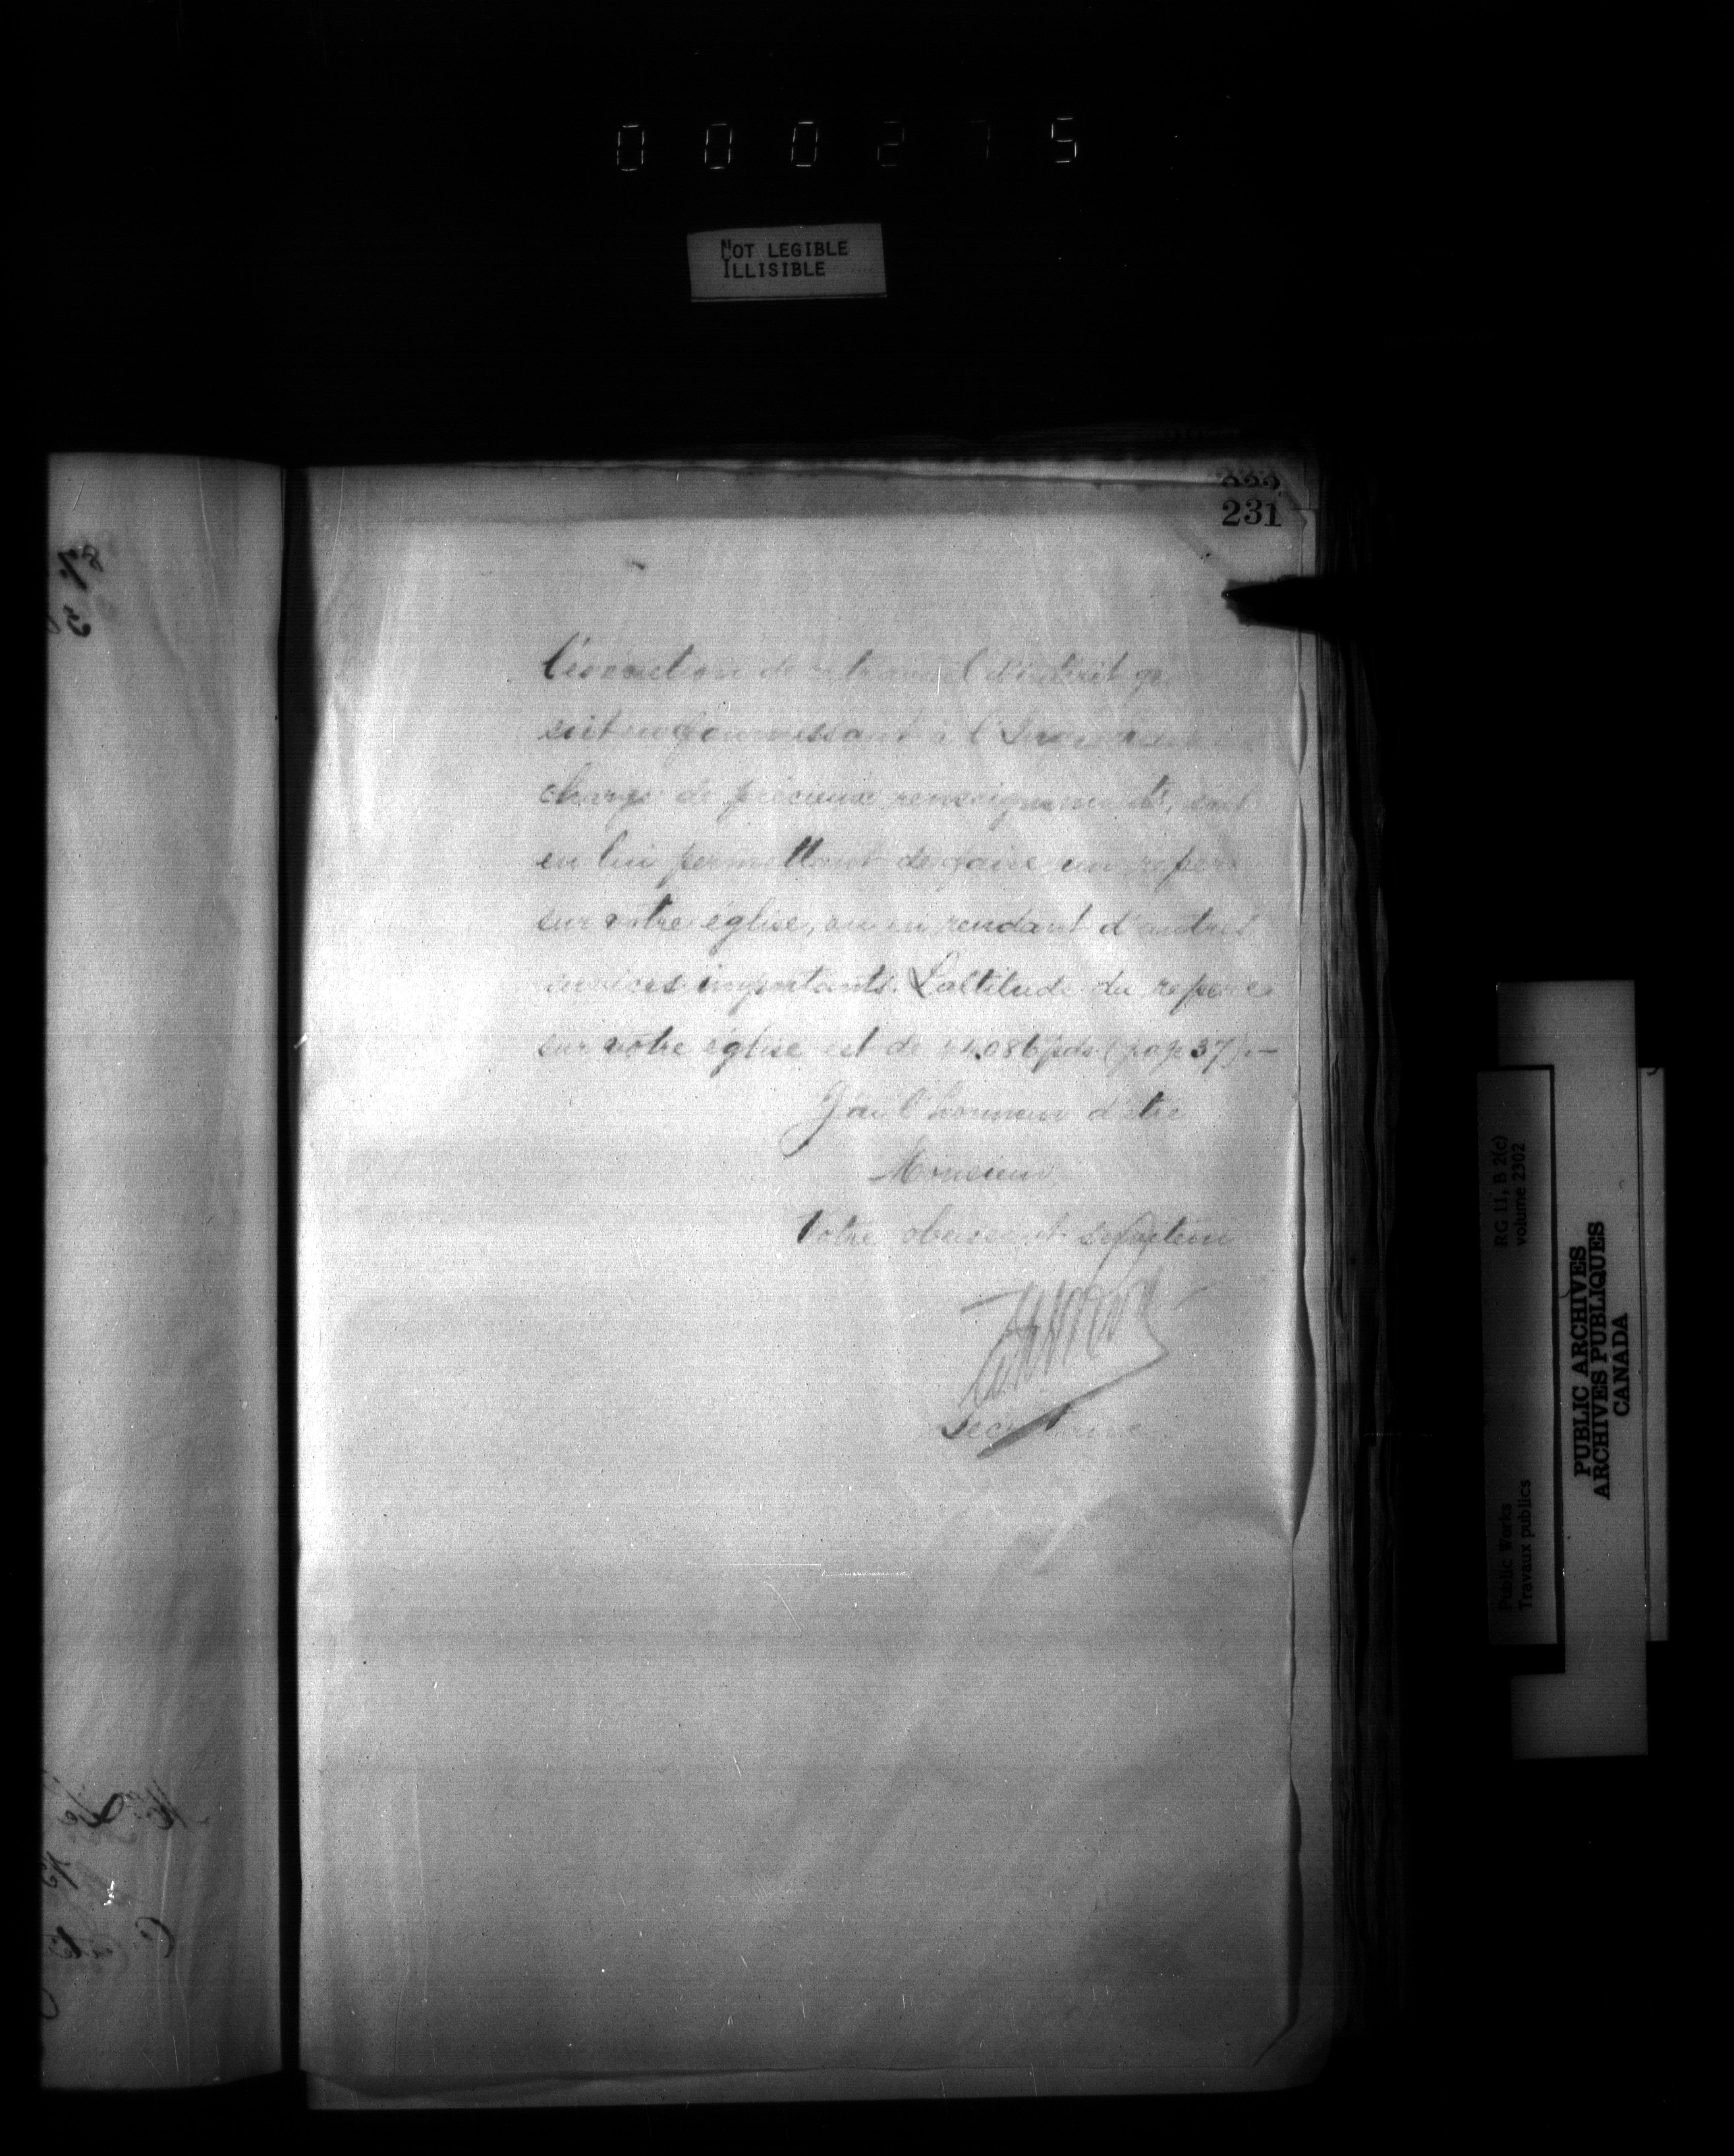 0 0 0 2 7 5
NOT LEGIBLE
ILLISIBLE
333
231
l'exécution de ce travail d'intérêt
soit en fournissant à l'Ingénieur en
charge de précieux renseignements, soit
en lui permettant de faire un repère
sur votre église, ou en rendant d'autres
services importants. L'altitude du repère
sur votre église est de 44.086 pds. (page 37).—
J'ai l'honneur d'être
Monsieur,
Votre obéissant serviteur
Secrétaire
Public Works
Travaux publics
RG 11, B 2(c)
volume 2302
PUBLIC ARCHIVES
ARCHIVES PUBLIQUES
CANADA